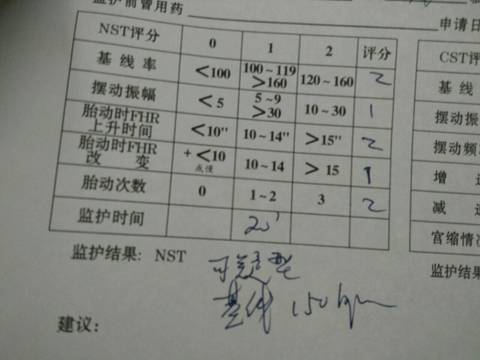 监护前曾用药
申请日
NST评分 0 1 2 评分 CST评
基线率 <100 100~119 >160 120~160 2 基线
摆动振幅 <5 5~9 >30 10~30 1 摆动振
胎动时FHR上升时间 <10" 10~14" >15" 2 摆动频
胎动时FHR改变 +<10 10~14 >15 1 增
胎动次数 0 1~2 3 2 减
监护时间 20' 宫缩情况
监护结果: NST 可疑型 监护结
基线 150bpm
建议: